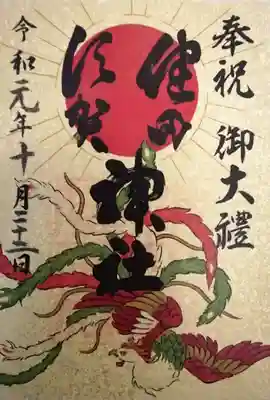 奉祝 御大禮
健田
須賀
神社
令和元年十月二十二日